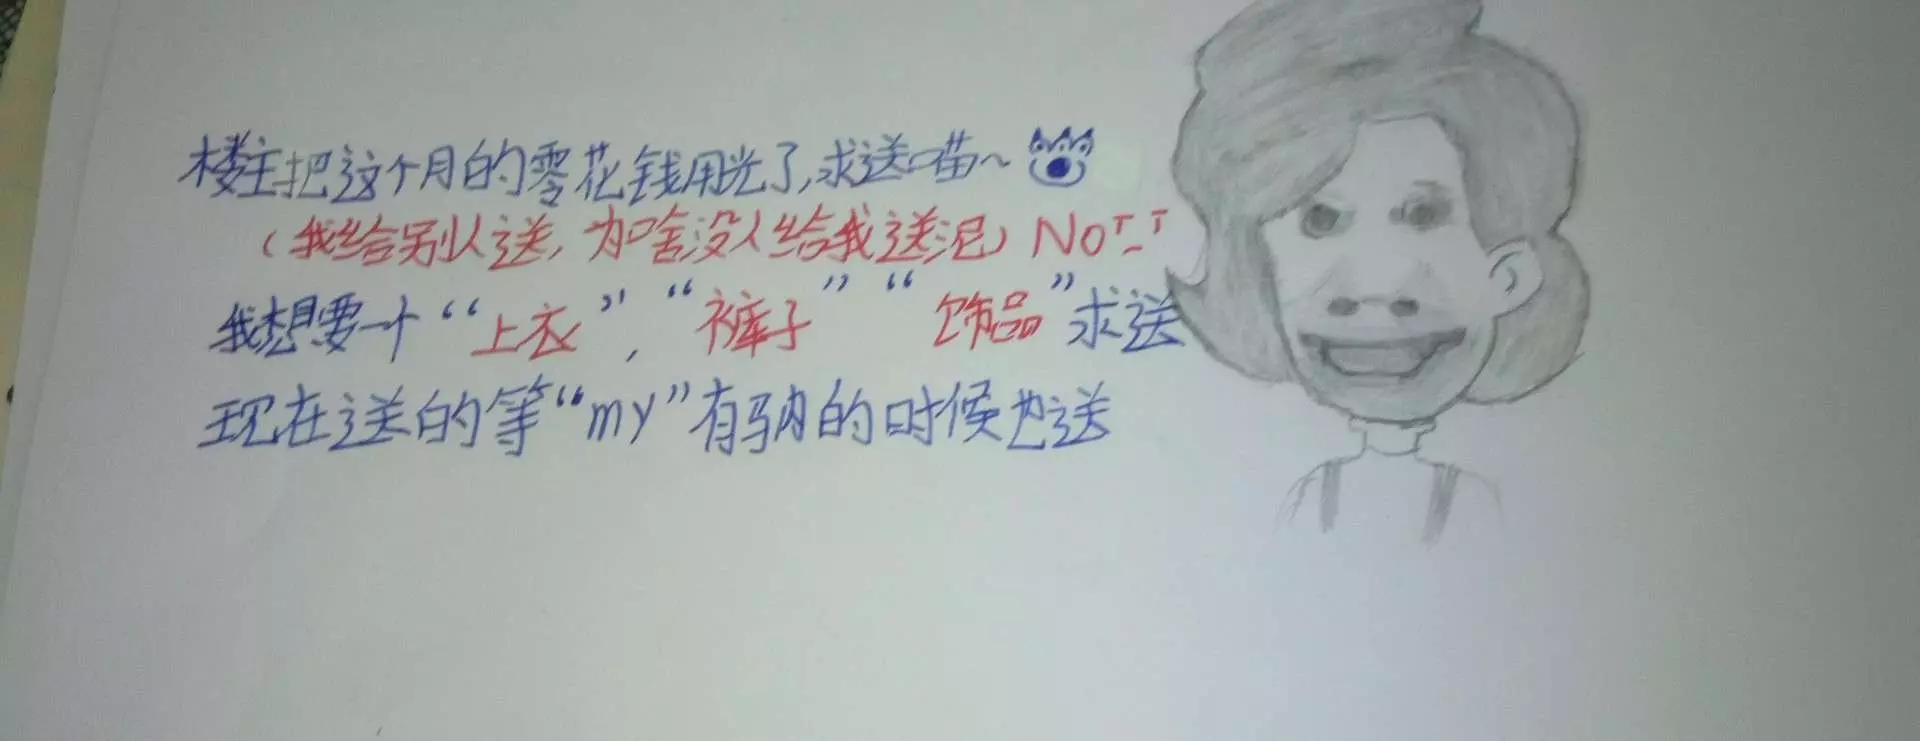 楼主把这个月的零花钱用光了,求送喵~
(我给别人送,为啥没人给我送泥) NO T_T
我想要一个“上衣”,“裤子”“饰品”求送
现在送的等“my”有的时候也送